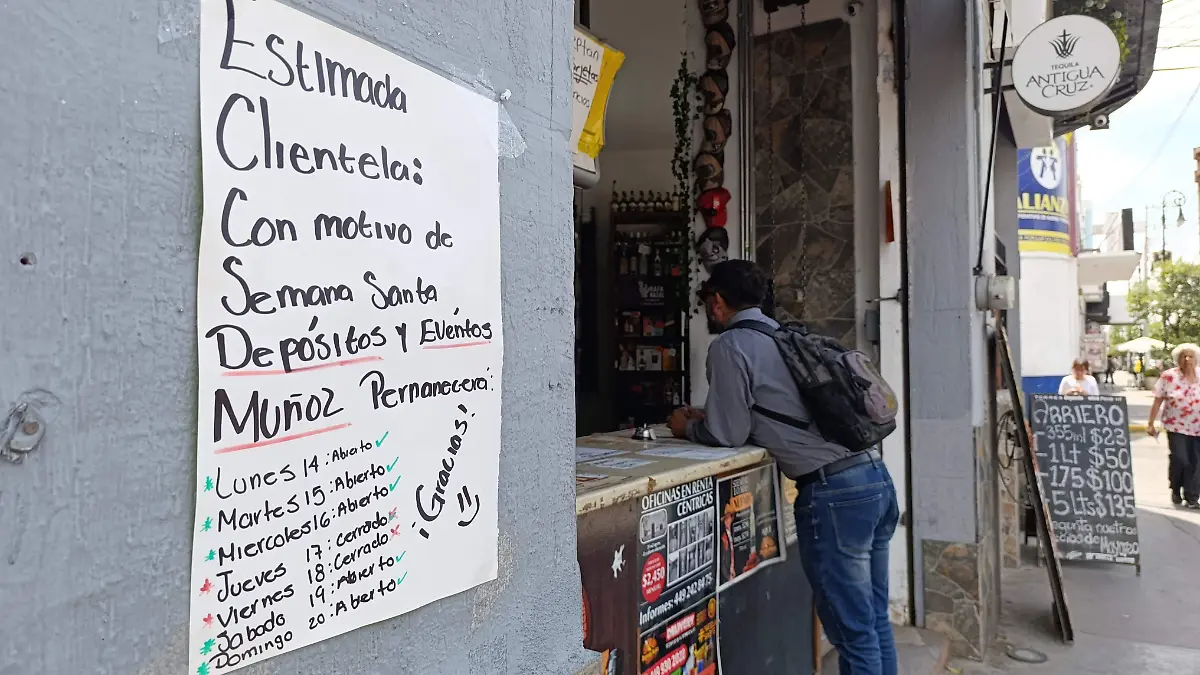 Estimada
Clientela:
Con motivo de
Semana Santa
Depósitos y Evéntos
Muñoz Permanecerá:
Lunes 14: Abierto
Martes 15: Abierto
Miercoles 16: Abierto
Jueves 17: Cerrado
Viernes 18: Cerrado
Sabado 19: Abierto
Domingo 20: Abierto
¡Gracias!
TEQUILA
ANTIGUA
CRUZ.
ALIANZ
OFICINAS EN RENTA
CENTRICAS
$2,450
Informes: 449 242 8475
449 930 2020
ARRIERO
355ml $23
-1Lt $50
-1.75 $100
5Lts $135